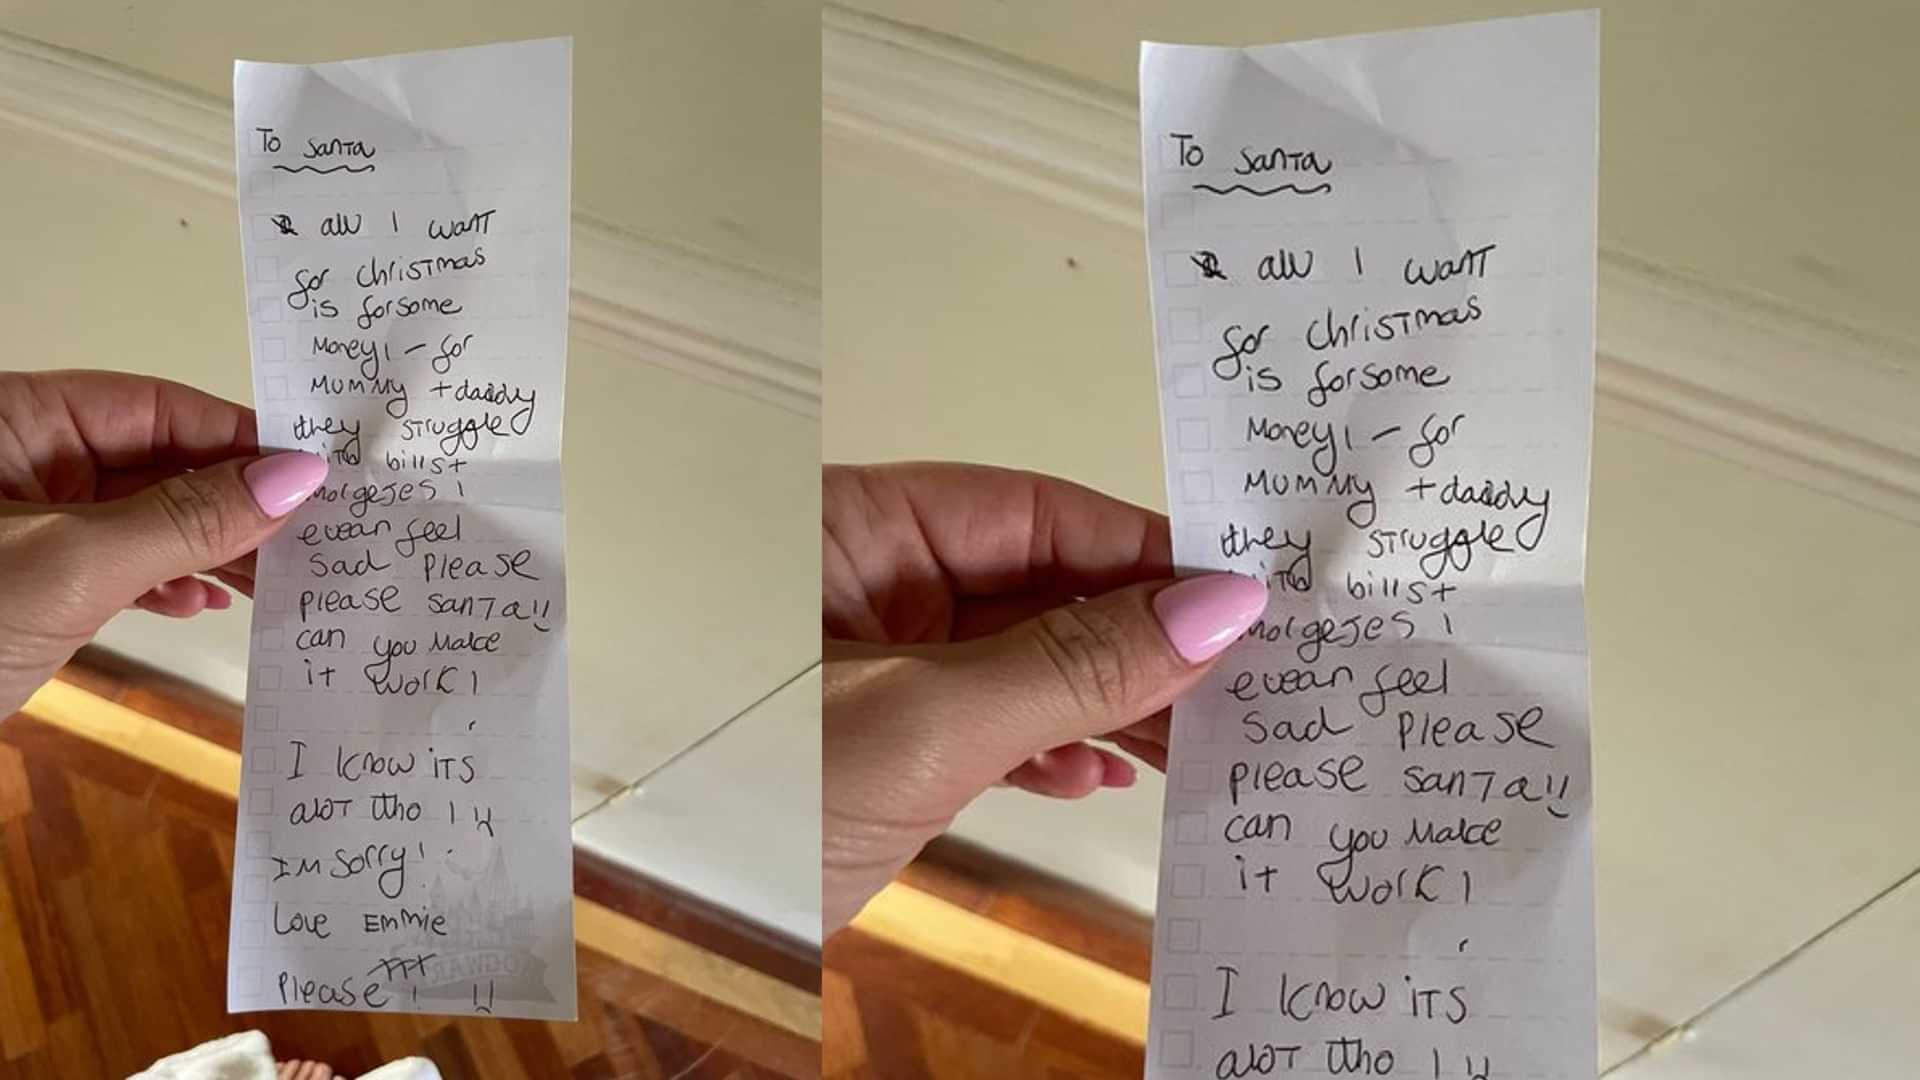 To Santa
all I want
for christmas
is forsome
Money! - for
Mummy + daddy
they struggle
bills +
morgejes !
evean feel
sad Please
please santa!!
can you Make
it work!
I know iTS
aloT tho ! :(
IM sorry!
Love Emmie
Please !
To Santa
all I want
for christmas
is forsome
Money! - for
Mummy + daddy
they struggle
bills +
morgejes !
evean feel
sad Please
please santa!!
can you Make
it work!
I know iTS
aloT tho !